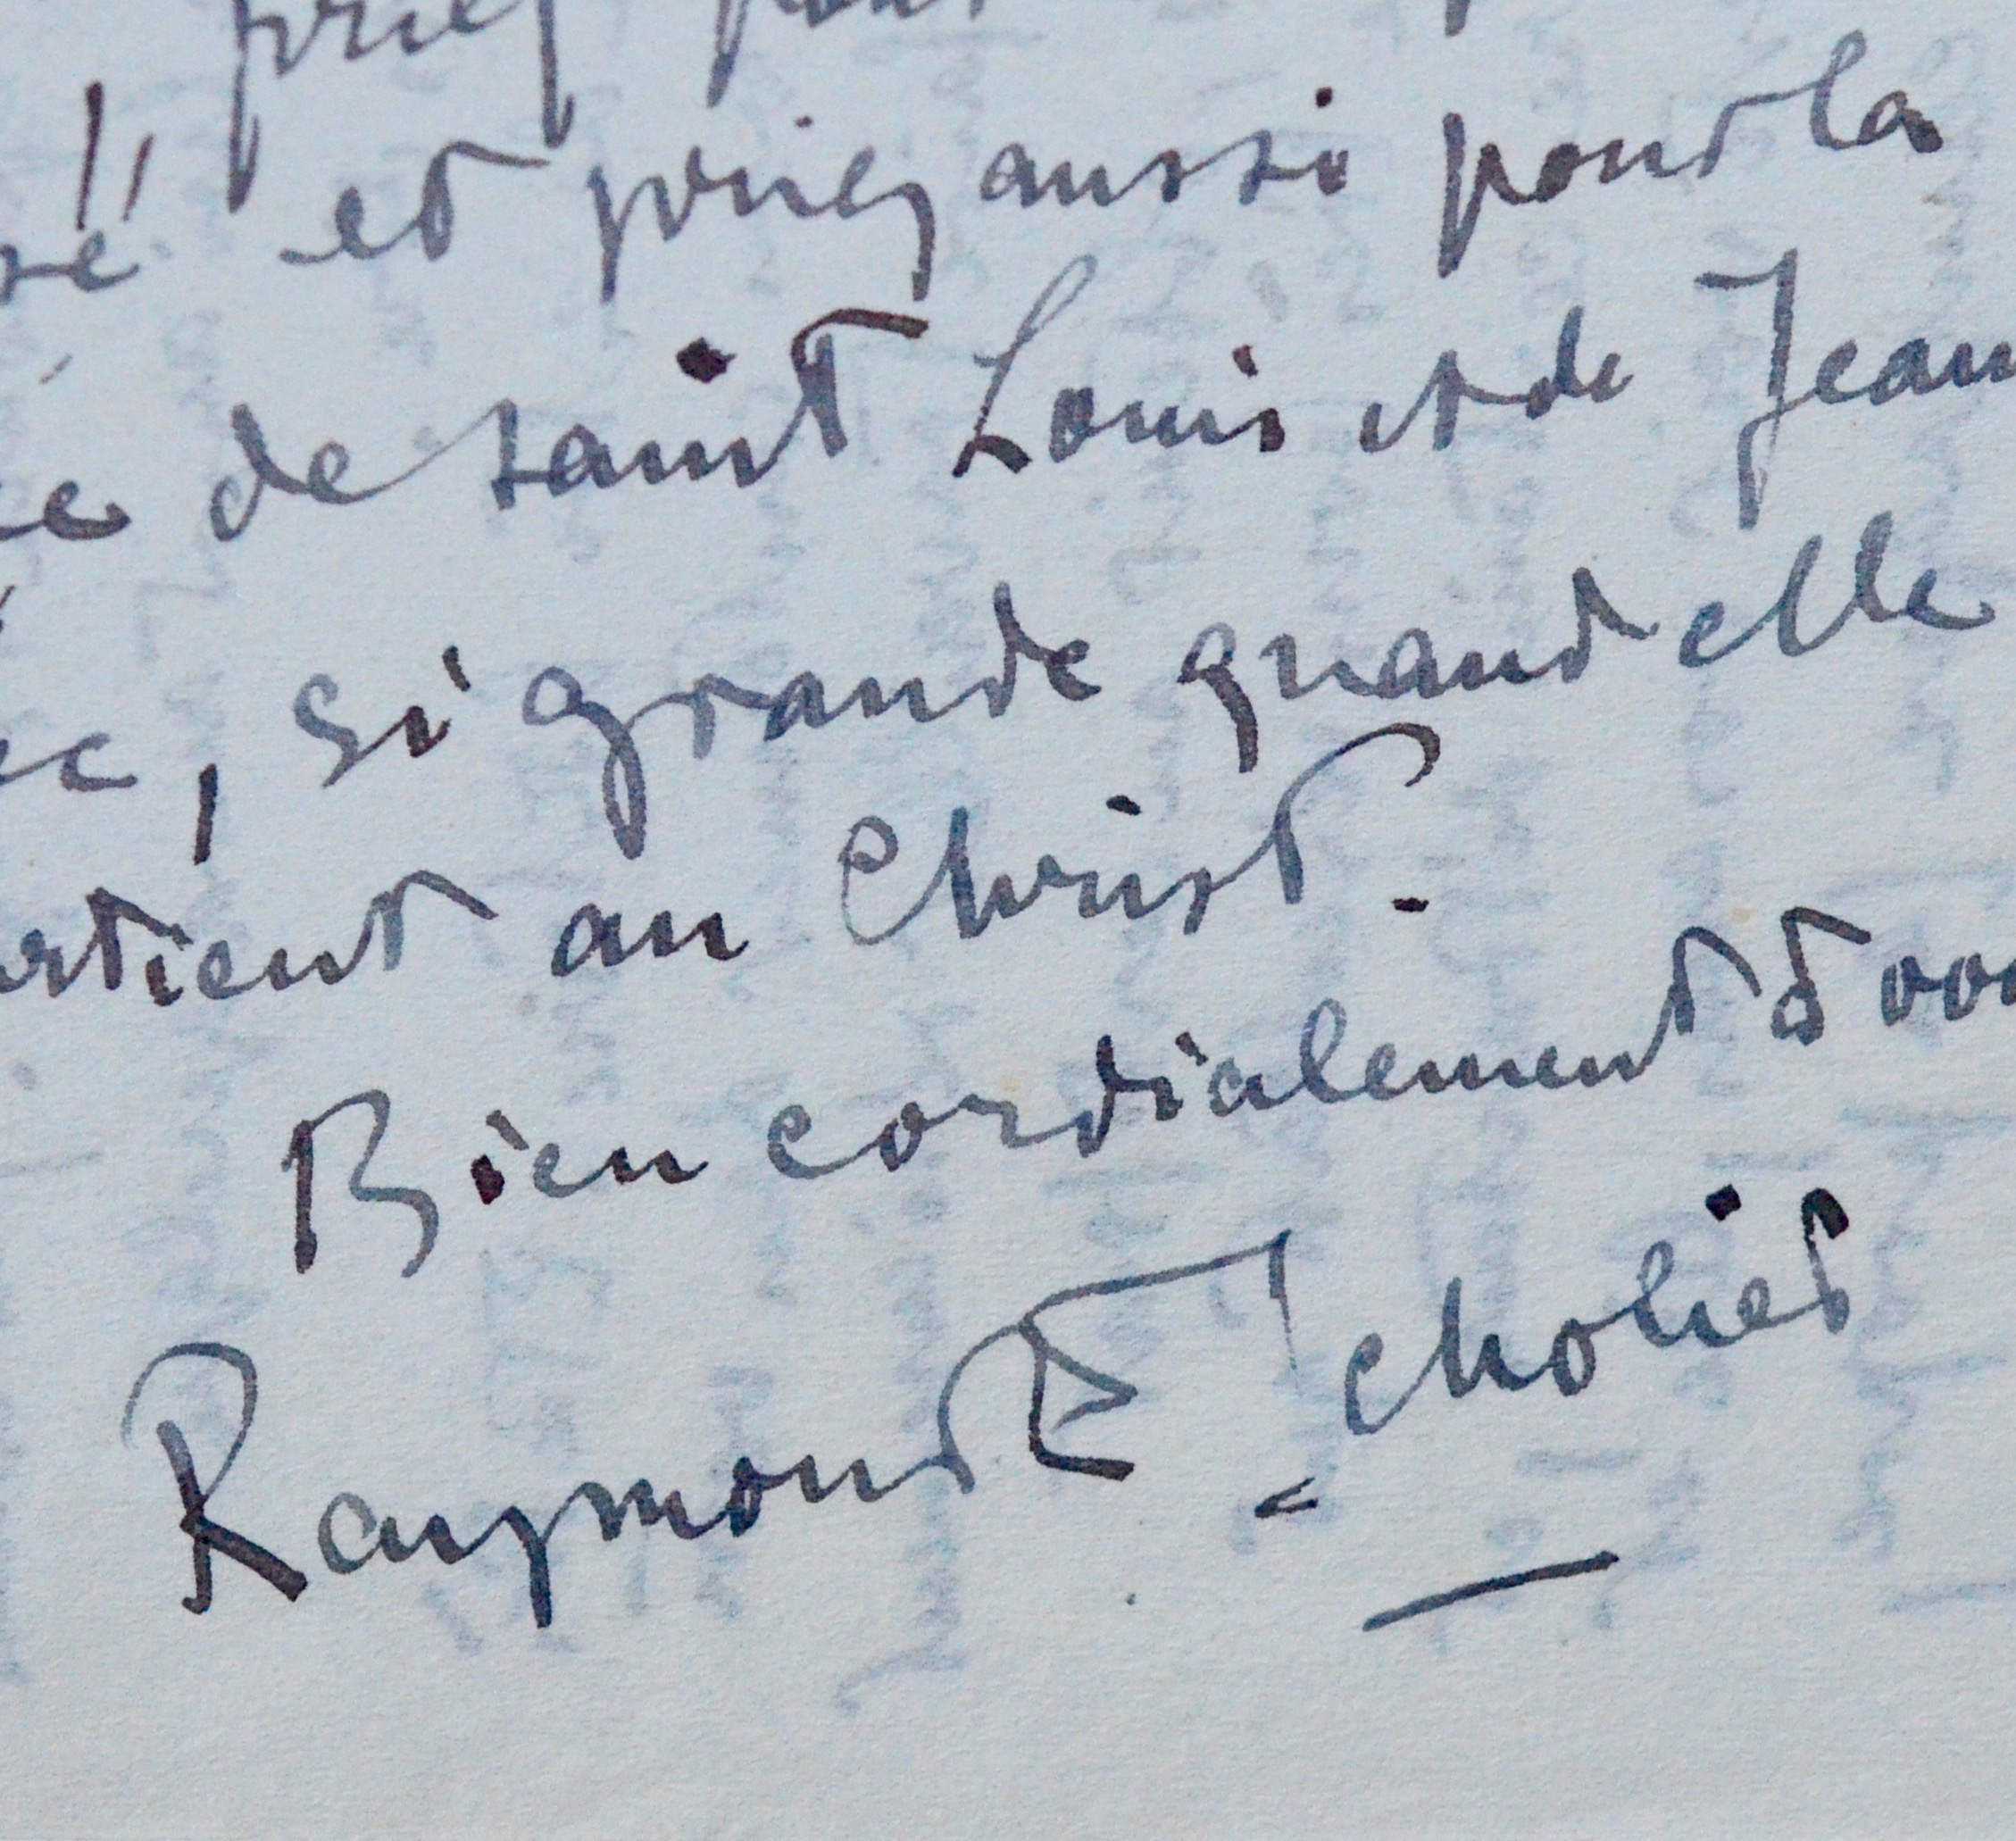 priez pour
et priez aussi pour la
de saint Louis et de Jean
, si grande quand elle
rtient au Christ.
Bien cordialement à vou
Raymond Escholier